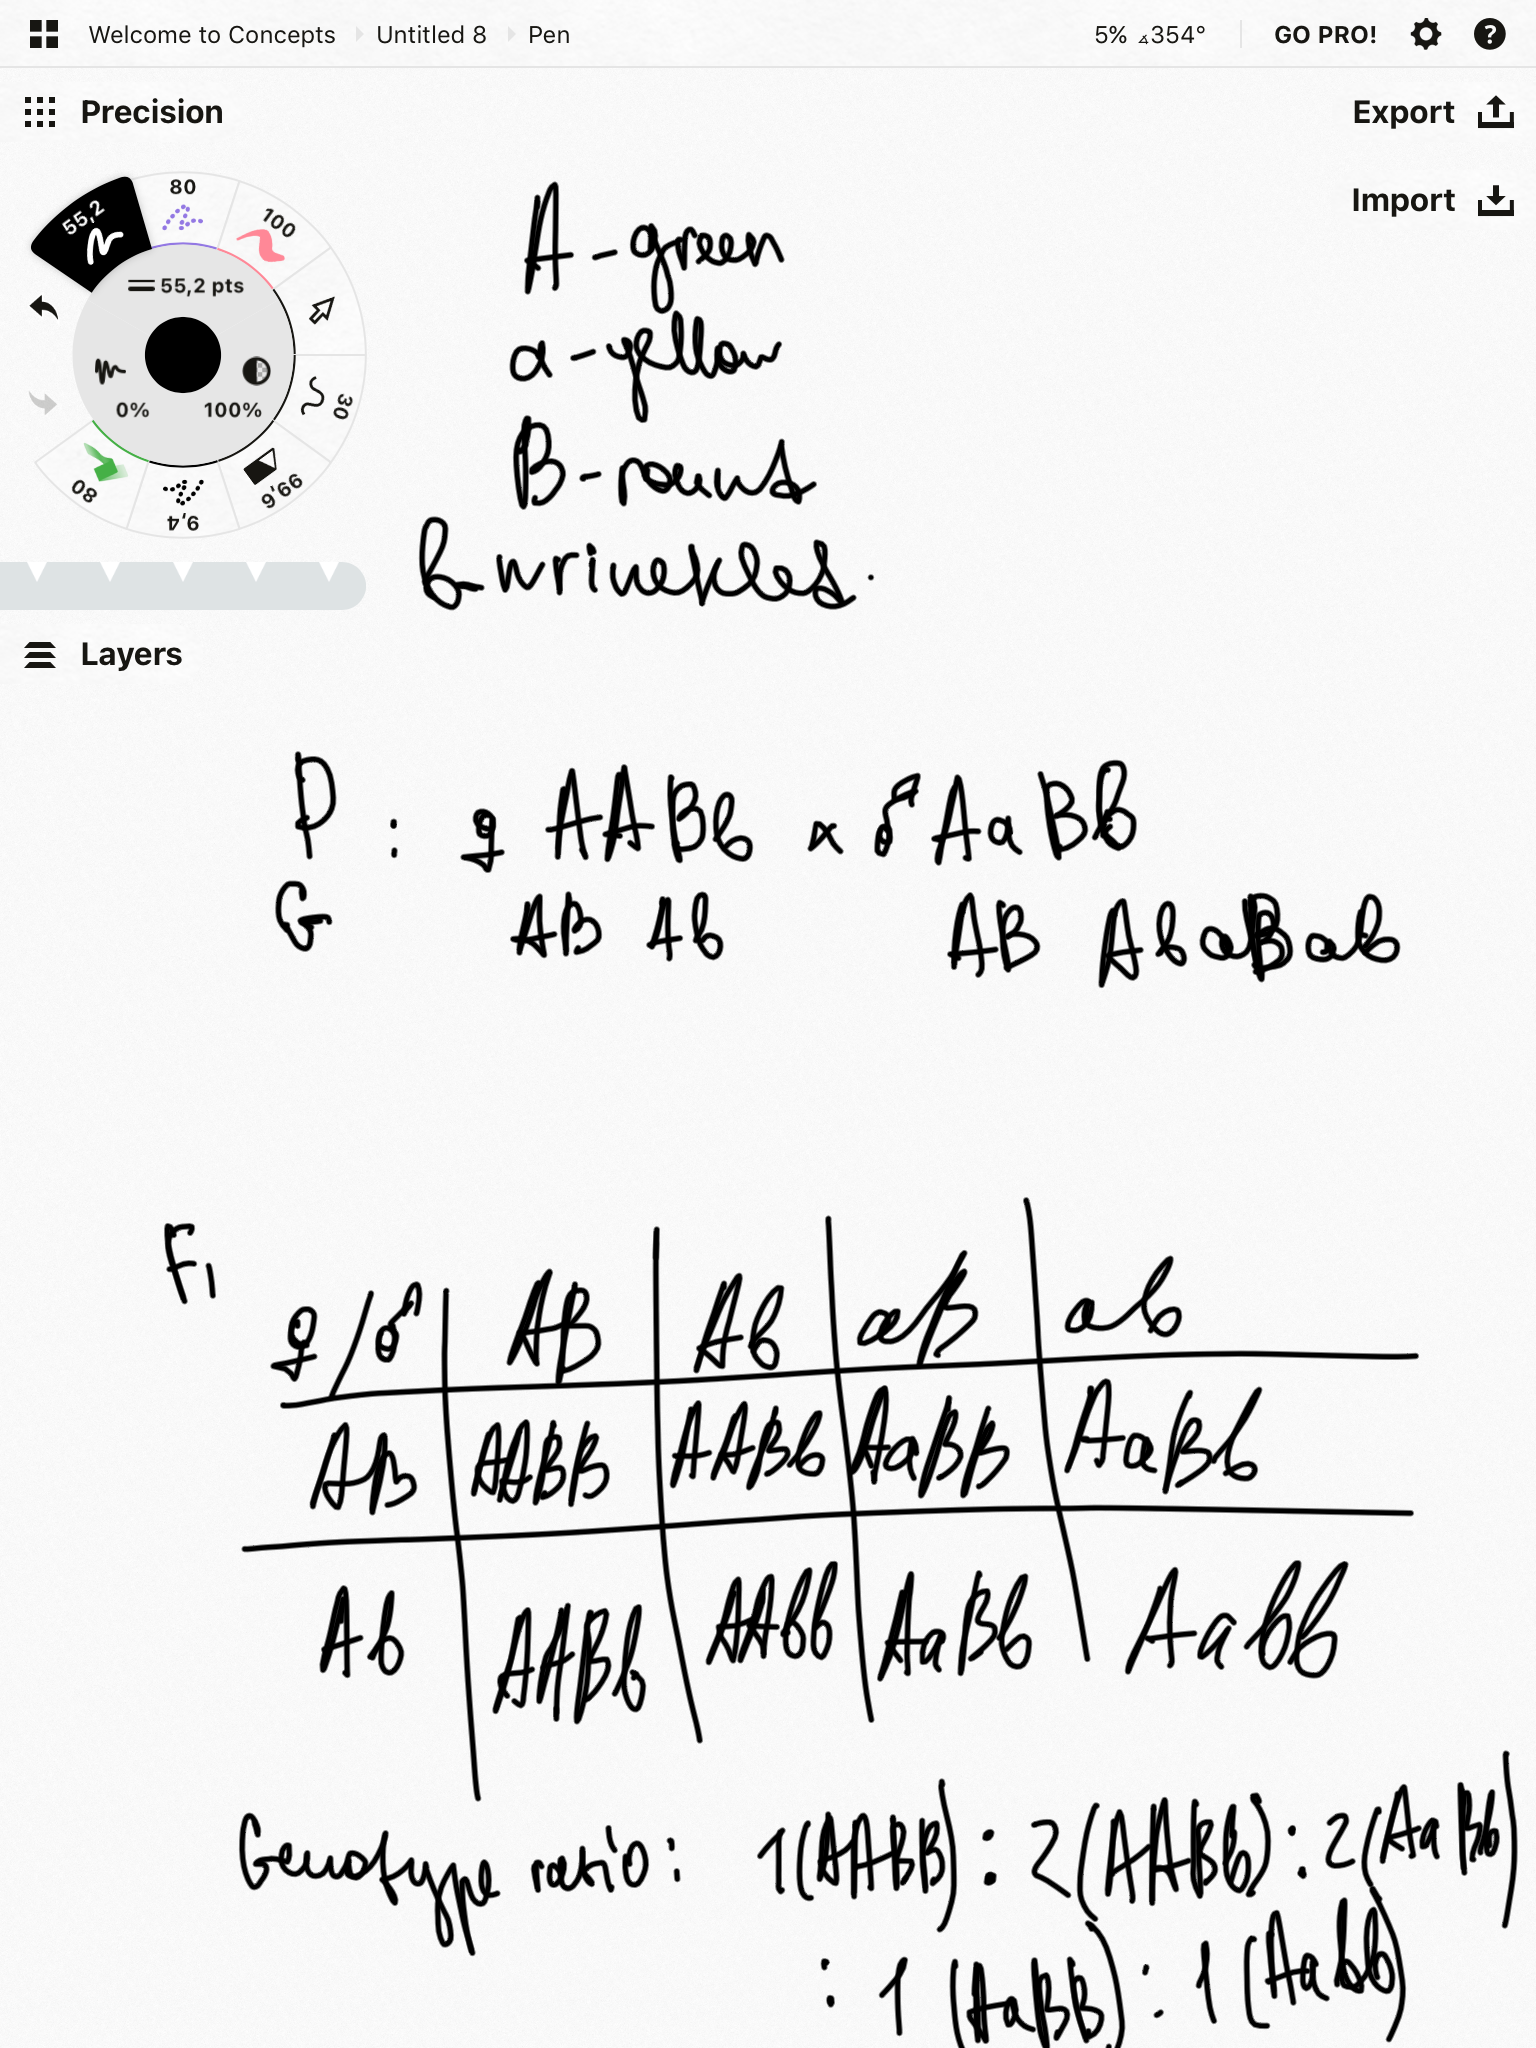 Welcome to Concepts Untitled 8 Pen 5% ∡354° GO PRO! ?
Precision Export
Import
80
55,2
100
55,2 pts
0% 100%
30
80
9,4
99,6
Layers
A - green
a - yellow
B - round
b - wrinekled.
P : ♀ AABb x ♂ AaBb
G AB Ab AB Ab aB ab
F1
♀/♂ AB Ab aB ab
AB AABB AABb AaBB AaBb
Ab AABb AAbb AaBb Aabb
Genotype ratio: 1(AABB) : 2(AABb) : 2(AaBb)
: 1 (AaBB) : 1 (Aabb)